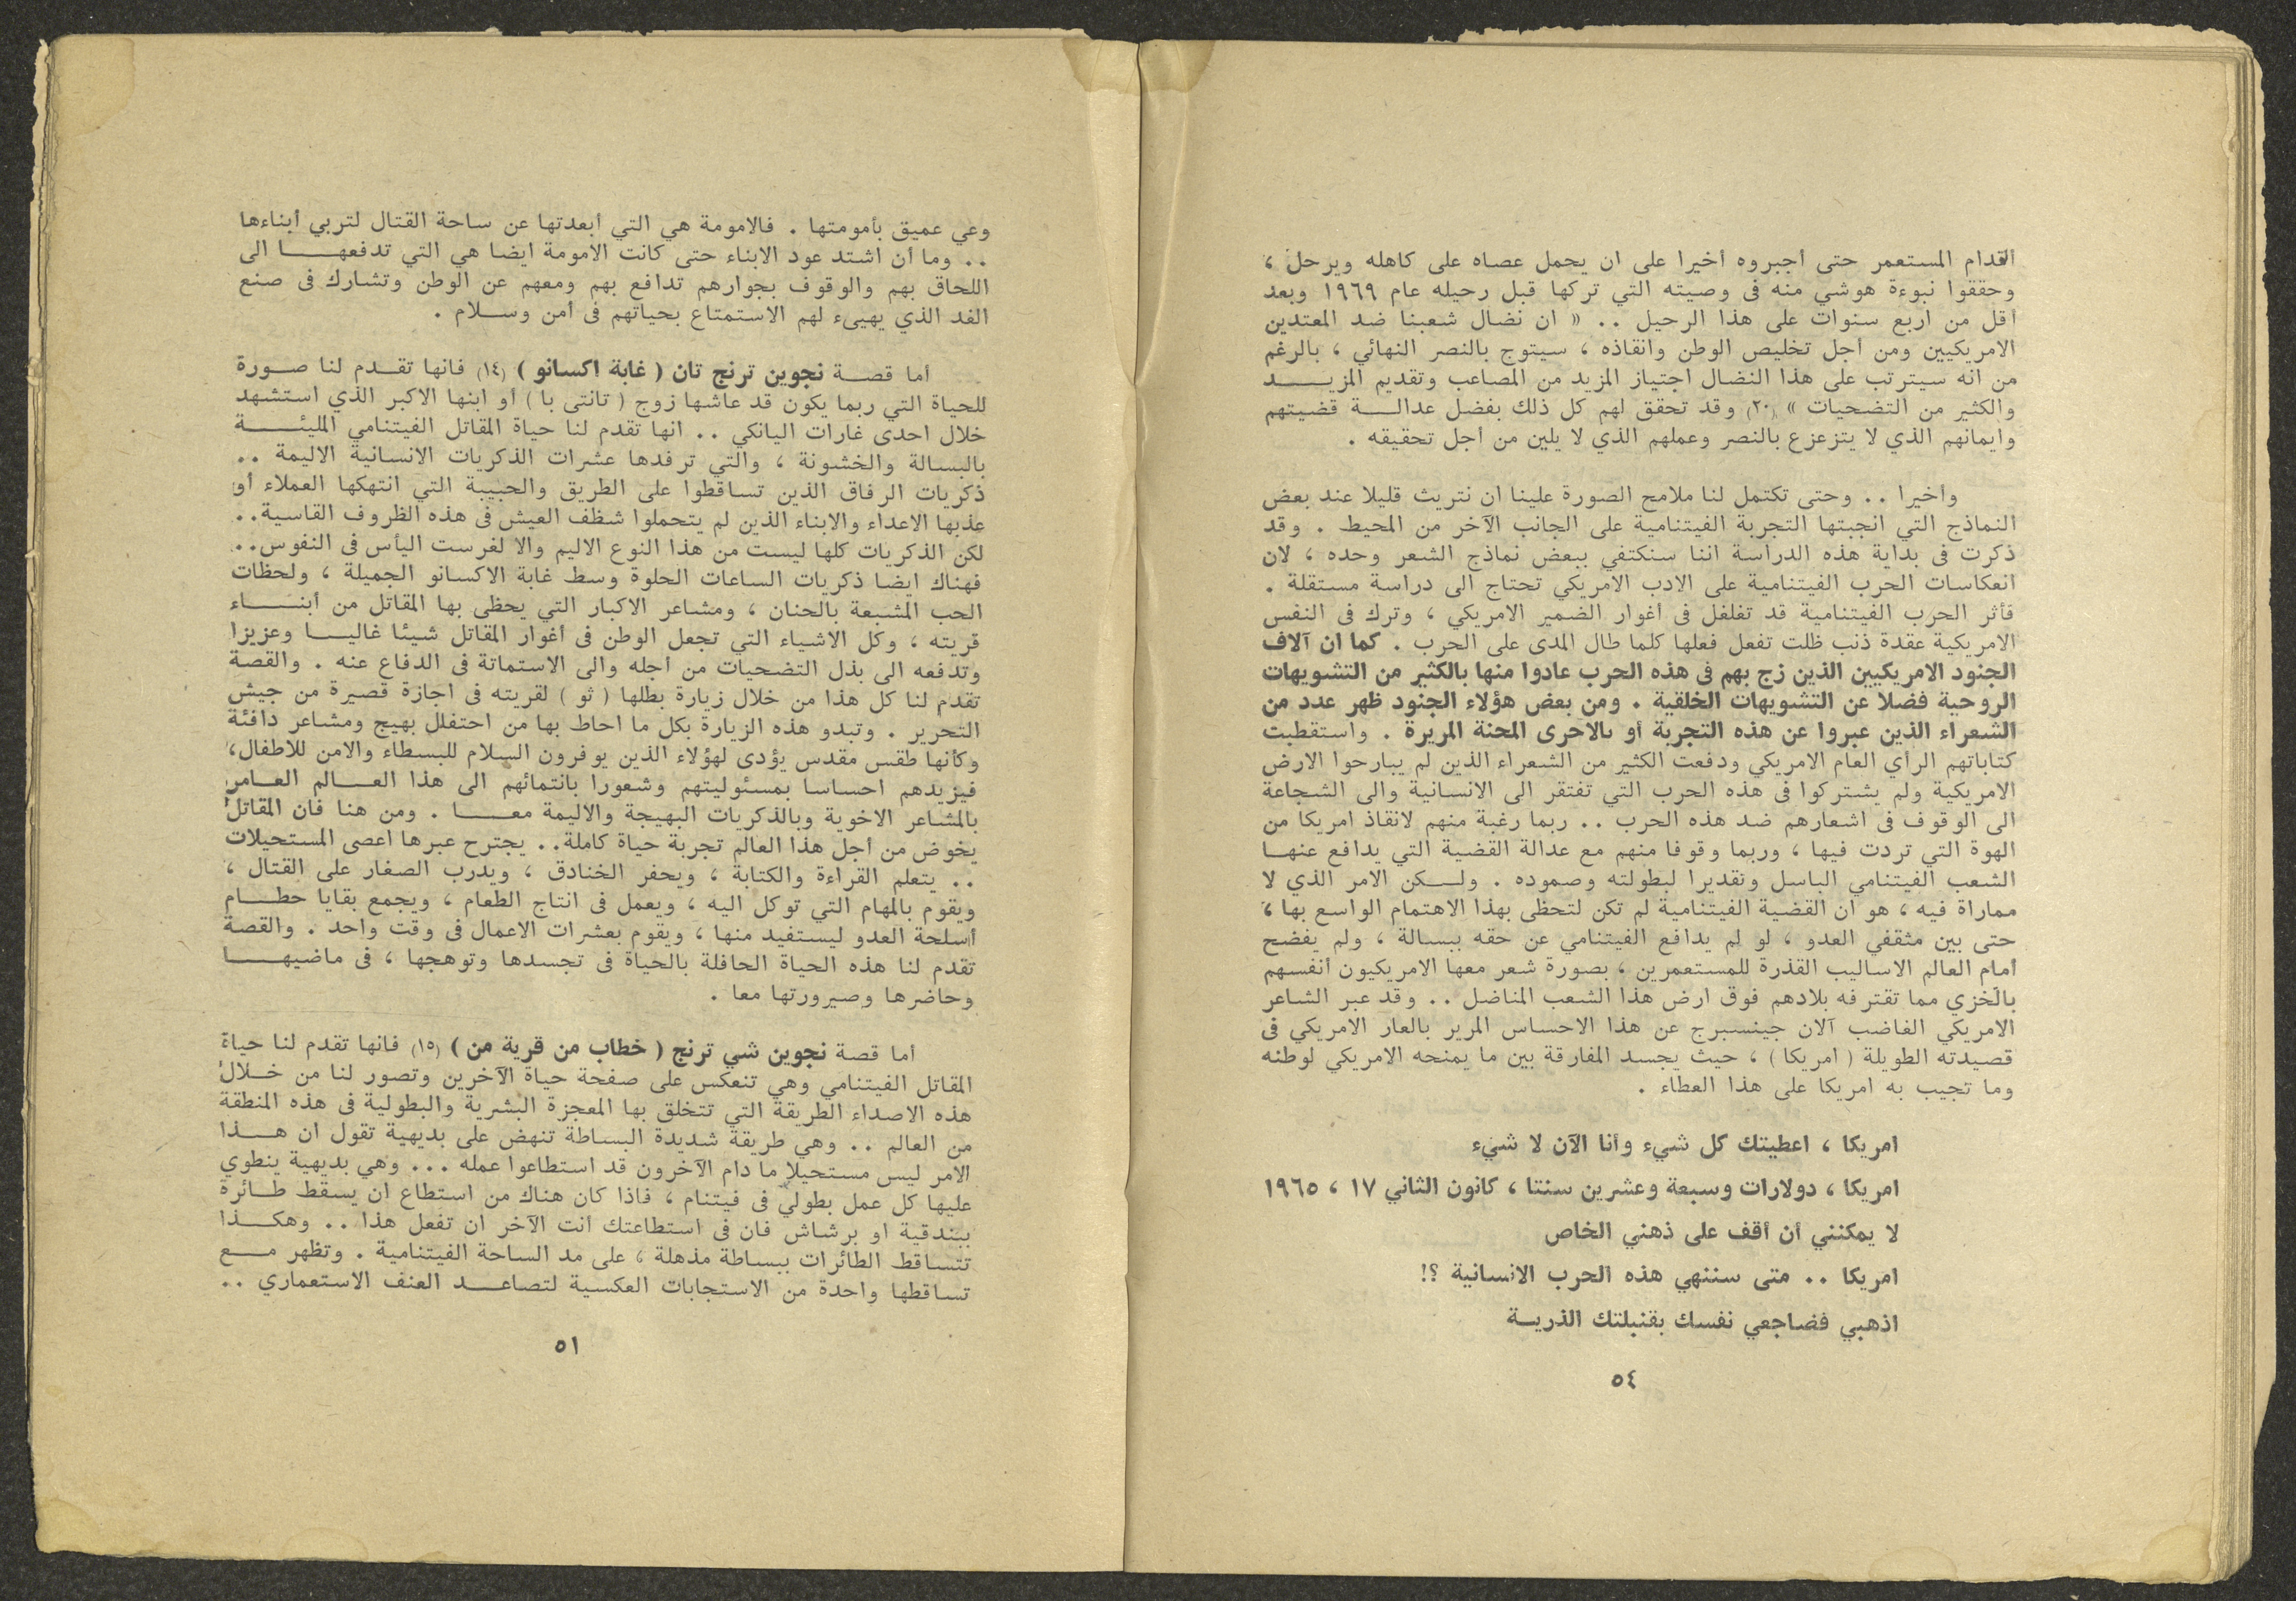 أقدام المستعمر حتى أجبروه أخيرا على ان يحمل عصاه على كاهله ويرحل ،
وحققوا نبوءة هوشي منه فى وصيته التي تركها قبل رحيله عام ١٩٦٩ وبعد
أقل من أربع سنوات على هذا الرحيل .. « ان نضال شعبنا ضد المعتدين
الامريكيين ومن أجل تخليص الوطن وانقاذه ، سيتوج بالنصر النهائي ، بالرغم
من انه سيترتب على هذا النضال اجتياز المزيد من المصاعب وتقديم المزيــــد
والكثير من التضحيات » (٢٠) وقد تحقق لهم كل ذلك بفضل عدالــــة قضيتهم
وايمانهم الذي لا يتزعزع بالنصر وعملهم الذي لا يلين من أجل تحقيقه .
وأخيرا .. وحتى تكتمل لنا ملامح الصورة علينا ان نتريث قليلا عند بعض
النماذج التي انجبتها التجربة الفيتنامية على الجانب الآخر من المحيط . وقد
ذكرت فى بداية هذه الدراسة اننا سنكتفي ببعض نماذج الشعر وحده ، لان
انعكاسات الحرب الفيتنامية على الادب الامريكي تحتاج الى دراسة مستقلة .
فأثر الحرب الفيتنامية قد تغلغل فى أغوار الضمير الامريكي ، وترك فى النفس
الامريكية عقدة ذنب ظلت تفعل فعلها كلما طال المدى على الحرب . كما ان آلاف
الجنود الامريكيين الذين زج بهم فى هذه الحرب عادوا منها بالكثير من التشويهات
الروحية فضلا عن التشويهات الخلقية . ومن بعض هؤلاء الجنود ظهر عدد من
الشعراء الذين عبروا عن هذه التجربة أو بالاحرى المحنة المريرة . واستقطبت
كتاباتهم الرأي العام الامريكي ودفعت الكثير من الشعراء الذين لم يبارحوا الارض
الامريكية ولم يشتركوا فى هذه الحرب التي تفتقر الى الانسانية والى الشجاعة
الى الوقوف فى اشعارهم ضد هذه الحرب .. ربما رغبة منهم لانقاذ امريكا من
الهوة التي تردت فيها ، وربما وقوفا منهم مع عدالة القضية التي يدافع عنهــا
الشعب الفيتنامي الباسل وتقديرا لبطولته وصموده . ولــكن الامر الذي لا
مماراة فيه ، هو ان القضية الفيتنامية لم تكن لتحظى بهذا الاهتمام الواسع بها ،
حتى بين مثقفي العدو ، لو لم يدافع الفيتنامي عن حقه ببسالة ، ولم يفضح
أمام العالم الاساليب القذرة للمستعمرين ، بصورة شعر معها الامريكيون أنفسهم
بالخزي مما تقترفه بلادهم فوق ارض هذا الشعب المناضل .. وقد عبر الشاعر
الامريكي الغاضب آلان جينسبرج عن هذا الاحساس المرير بالعار الامريكي فى
قصيدته الطويلة ( امريكا ) ، حيث يجسد المفارقة بين ما يمنحه الامريكي لوطنه
وما تجيب به امريكا على هذا العطاء .
امريكا ، اعطيتك كل شيء وأنا الآن لا شيء
امريكا ، دولارات وسبعة وعشرين سنتا ، كانون الثاني ١٧ ، ١٩٦٥
لا يمكنني أن أقف على ذهني الخاص
امريكا .. متى سننهي هذه الحرب الانسانية ؟!
اذهبي فضاجعي نفسك بقنبلتك الذريــة
٥٤
وعي عميق بأمومتها . فالامومة هي التي أبعدتها عن ساحة القتال لتربي أبناءها
.. وما أن اشتد عود الابناء حتى كانت الامومة ايضا هي التي تدفعهـــــا الى
اللحاق بهم والوقوف بجوارهم تدافع بهم ومعهم عن الوطن وتشارك فى صنع
الغد الذي يهيىء لهم الاستمتاع بحياتهم فى أمن وســلام .
أما قصــة نجوين ترنج تان ( غابة اكسانو ) (١٤) فانها تقــدم لنا صــورة
للحياة التي ربما يكون قد عاشها زوج ( تانتى با ) أو ابنها الاكبر الذي استشهد
خلال احدى غارات اليانكي .. انها تقدم لنا حياة المقاتل الفيتنامي المليئـــــة
بالبسالة والخشونة ، والتي ترفدها عشرات الذكريات الانسانية الاليمة ..
ذكريات الرفاق الذين تساقطوا على الطريق والحبيبة التي انتهكها العملاء أو
عذبها الاعداء والابناء الذين لم يتحملوا شظف العيش فى هذه الظروف القاسية ..
لكن الذكريات كلها ليست من هذا النوع الاليم والا لغرست اليأس فى النفوس ..
فهناك ايضا ذكريات الساعات الحلوة وسط غابة الاكسانو الجميلة ، ولحظات
الحب المشبعة بالحنان ، ومشاعر الاكبار التي يحظى بها المقاتل من أبنــــاء
قريته ، وكل الاشياء التي تجعل الوطن فى أغوار المقاتل شيئا غاليــا وعزيزا
وتدفعه الى بذل التضحيات من أجله والى الاستماتة فى الدفاع عنه . والقصة
تقدم لنا كل هذا من خلال زيارة بطلها ( ثو ) لقريته فى اجازة قصيرة من جيش
التحرير . وتبدو هذه الزيارة بكل ما احاط بها من احتفلل بهيج ومشاعر دافئة
وكأنها طقس مقدس يؤدى لهؤلاء الذين يوفرون السلام للبسطاء والامن للاطفال،
فيزيدهم احساسا بمسئوليتهم وشعورا بانتمائهم الى هذا العــالم العــامر
بالمشاعر الاخوية وبالذكريات البهيجة والاليمة معـــا . ومن هنا فان المقاتل
يخوض من أجل هذا العالم تجربة حياة كاملة .. يجترح عبرها اعصى المستحيلات
.. يتعلم القراءة والكتابة ، ويحفر الخنادق ، ويدرب الصغار على القتال ،
ويقوم بالمهام التي توكل اليه ، ويعمل فى انتاج الطعام ، ويجمع بقايا حطــام
أسلحة العدو ليستفيد منها ، ويقوم بعشرات الاعمال فى وقت واحد . والقصة
تقدم لنا هذه الحياة الحافلة بالحياة فى تجسدها وتوهجها ، فى ماضيهـــــا
وحاضرها وصيرورتها معا .
أما قصة نجوين شي ترنج ( خطاب من قرية من ) (١٥) فانها تقدم لنا حياة
المقاتل الفيتنامي وهي تنعكس على صفحة حياة الآخرين وتصور لنا من خــلال
هذه الاصداء الطريقة التي تتخلق بها المعجزة البشرية والبطولية فى هذه المنطقة
من العالم .. وهي طريقة شديدة البساطة تنهض على بديهية تقول ان هــــذا
الامر ليس مستحيلا ما دام الآخرون قد استطاعوا عمله ... وهي بديهية ينطوي
عليها كل عمل بطولي فى فيتنام ، فاذا كان هناك من استطاع ان يسقط طــائرة
ببندقية او برشاش فان فى استطاعتك انت الآخر ان تفعل هذا .. وهكــذا
تتساقط الطائرات ببساطة مذهلة ، على مد الساحة الفيتنامية . وتظهر مـــع
تساقطها واحدة من الاستجابات العكسية لتصاعــد العنف الاستعماري ..
٥١